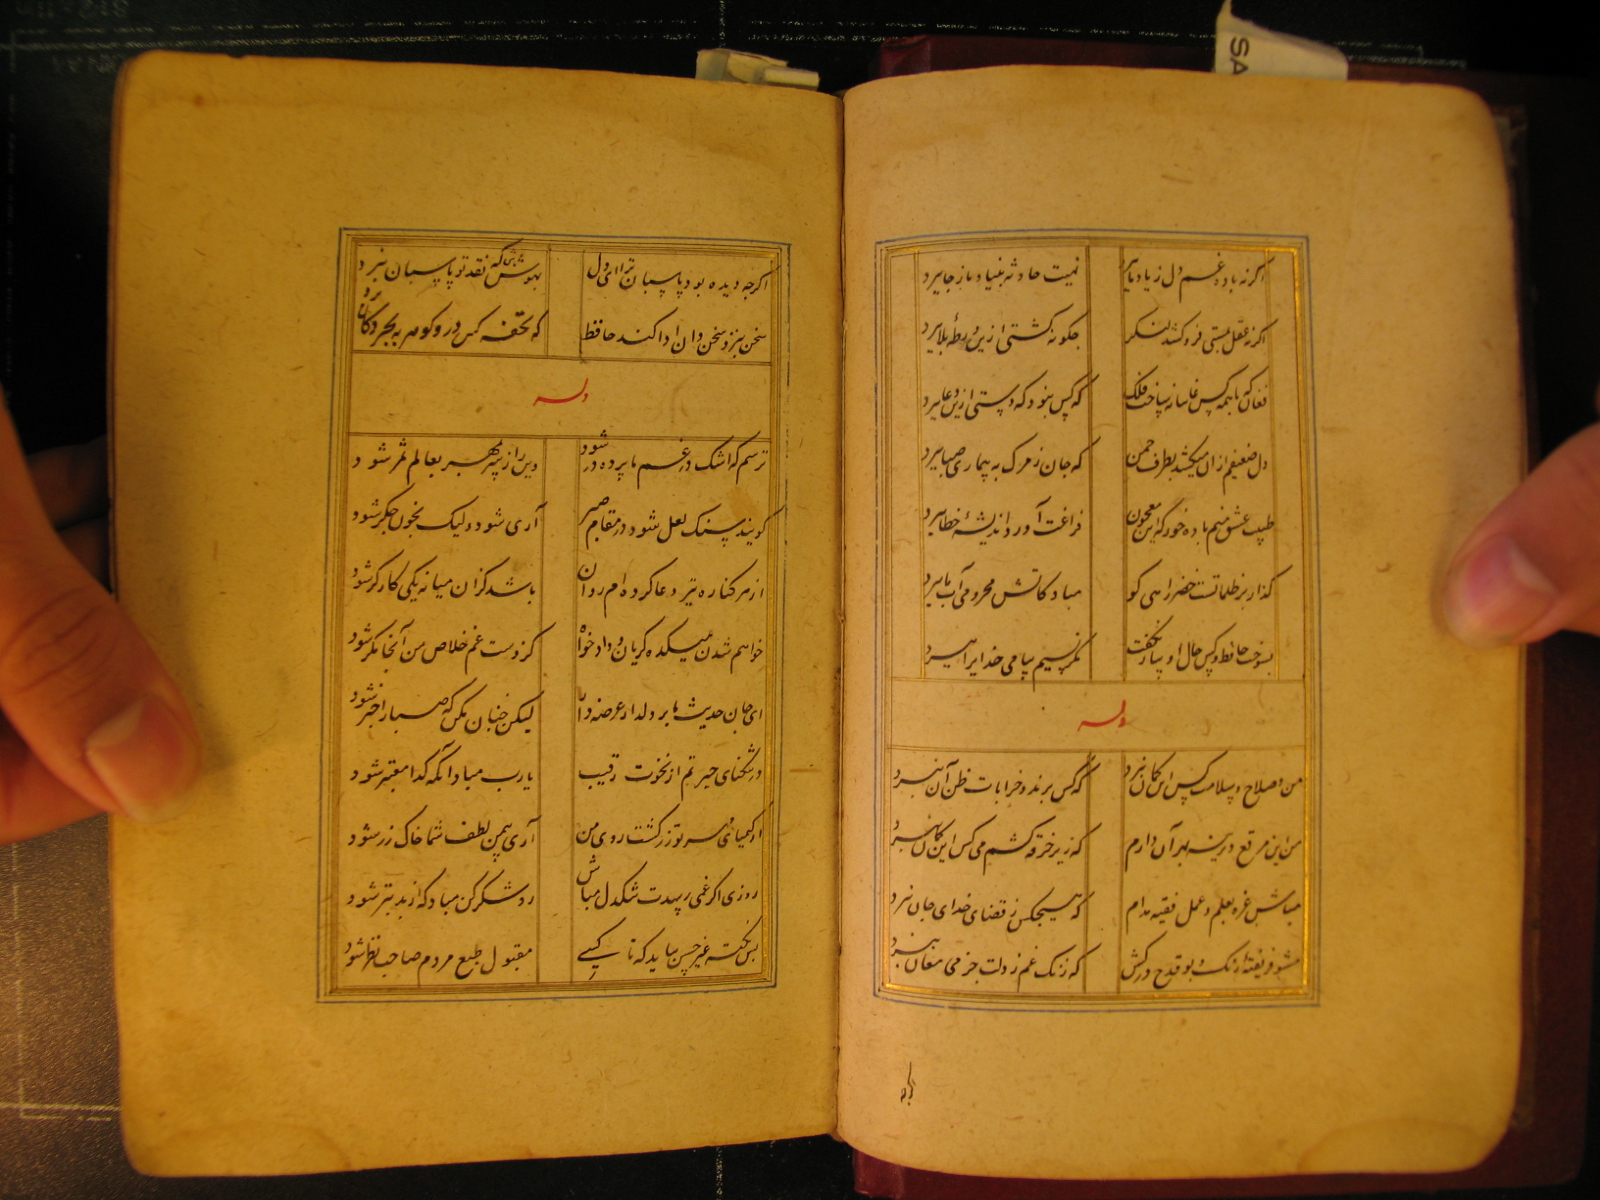 SA
اگر نه باده غم دل ز یاد ما ببرد نهیب حادثه بنیاد ما ز جا ببرد
اگر نه عقل بمستی فرو کشد لنگر چگونه کشتی ازین ورطهٔ بلا ببرد
فغان که با همه کس غایبانه باخت فلک که کس نبود که دستی ازین دغا ببرد
دل ضعیفم از آن میکشد بطرف چمن که جان ز مرگ به بیماری صبا ببرد
طبیب عشق منم باده خور که این معجون فراغت آورد و اندیشهٔ خطا ببرد
گذار بر ظلماتست خضر راهی کو مباد کاتش محرومی آب ما ببرد
بسوخت حافظ و کس حال او بیار نگفت مگر نسیم پیامی خدایرا ببرد
وله
من و صلاح و سلامت کس این گمان نبرد که کس برند خرابات ظن آن نبرد
من این مرقع دیرینه بهر آن دارم که زیر خرقه کشم می کس این گمان نبرد
مباش غره بعلم و عمل فقیه مدام که هیچکس ز قضای خدای جان نبرد
مشو فریفتهٔ رنگ و بو قدح درکش که زنگ غم ز دلت جز می مغان نبرد
اگرچه
اگرچه دیده بود پاسبان ترا ای دل بهوش باش که نقد تو پاسبان نبرد
سخن بنزد سخن دان ادا مکند حافظ که تحفه کس در و گوهر به بحر و کان نبرد
وله
ترسم که اشک در غم ما پرده در شود وین راز سر بمهر بعالم سمر شود
گویند سنگ لعل شود در مقام صبر آری شود ولیک بخون جگر شود
از هر کناره تیر دعا کرده ام روان باشد کزان میانه یکی کارگر شود
خواهم شدن بمیکده گریان و دادخواه کز دست غم خلاص من آنجا مگر شود
ای جان حدیث ما بر دلدار عرضه دار لیکن چنان مکن که صبا را خبر شود
در تنگنای حیرتم از نخوت رقیب یارب مباد آنکه گدا معتبر شود
از کیمیای مهر تو زر گشت روی من آری بیمن لطف شما خاک زر شود
روزی اگر غمی رسدت تنگدل مباش رو شکر کن مباد که از بد بتر شود
بس نکته غیر حسن بباید که تا کسی مقبول طبع مردم صاحب نظر شود